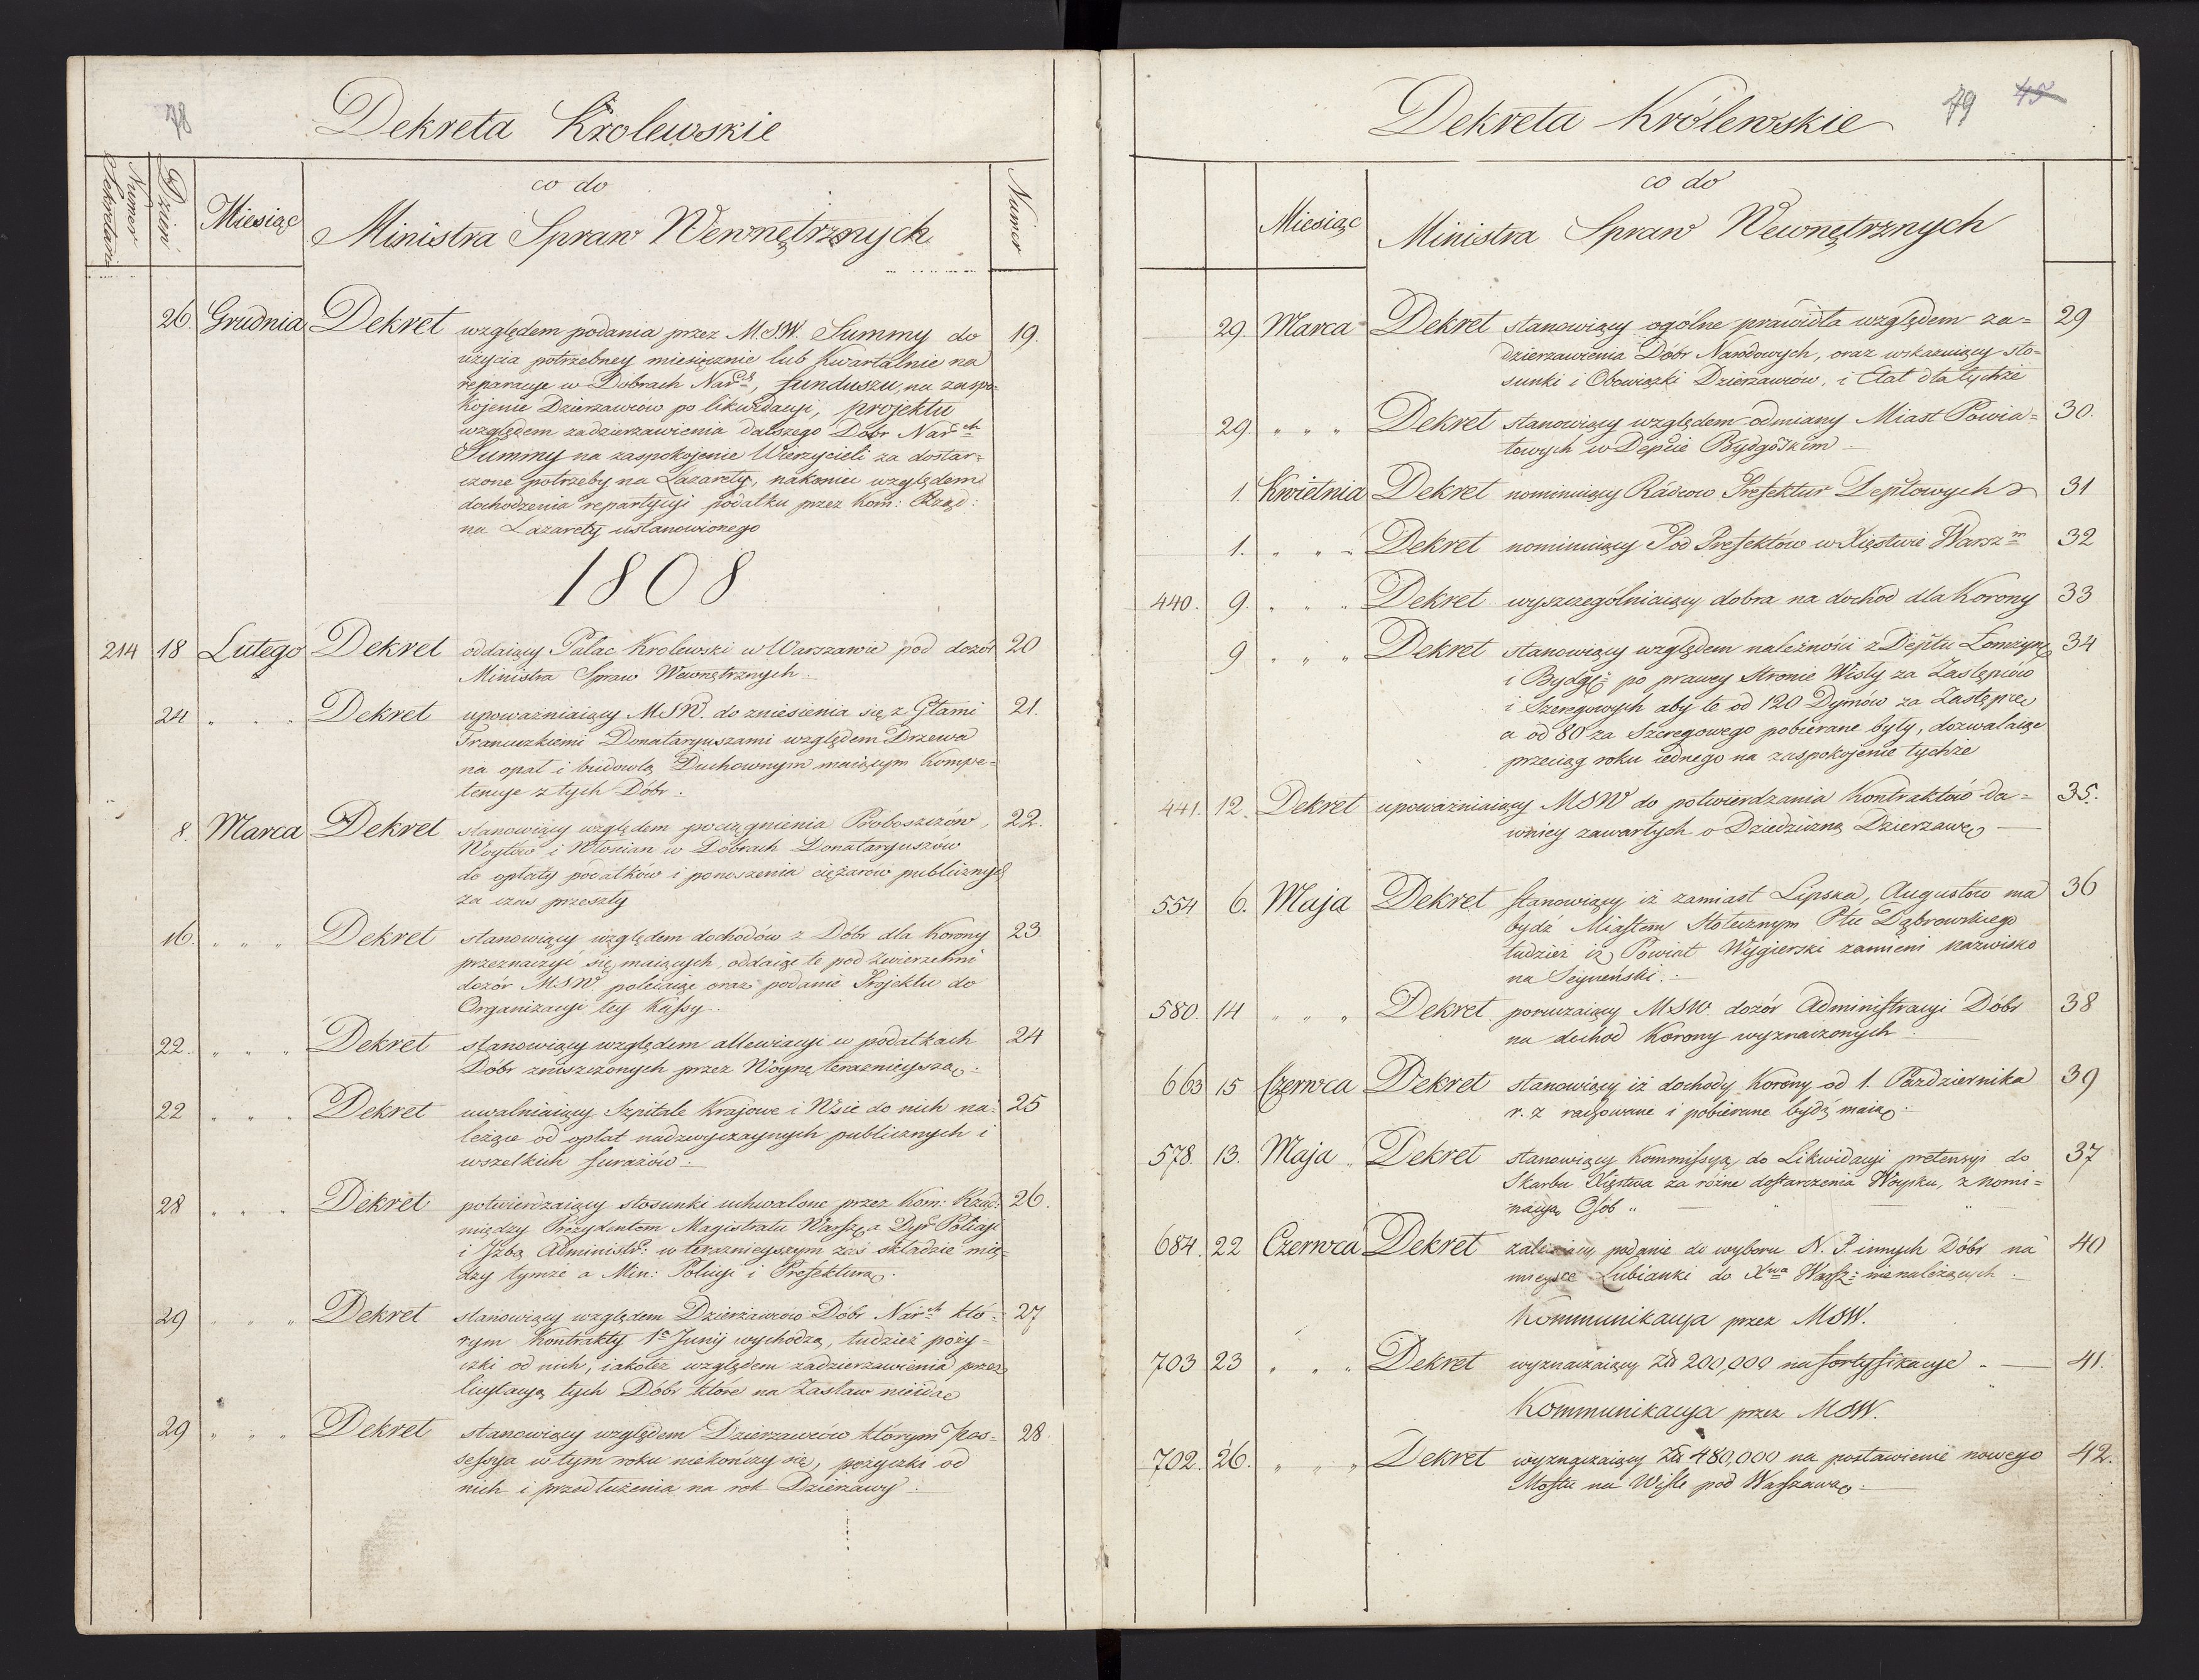 78
Dekreta Krolewskie
Numer Sekretariu
Dzień
Miesiąc
co do
Ministra Spraw Wewnętrznych
Numer
26. Grudnia Dekret względem podania przez M.S.W. Summy do 19.
użycia potrzebney miesięcznie lub Kwartalnie na
reparacye w Dobrach Nar:ch, funduszu, na zaspo-
kojenie Dzierzawców po likwidacyi, projektu
względem zadzierzawienia dalszego Dóbr Nar:ch
Summy na zaspokojenie Wierzycieli za dostar-
czone potrzeby na Lazarety, nakoniec względem
dochodzenia repartycyi podatku przez Kom: Rząd:
na Lazarety ustanowionego
1808
214 18 Lutego Dekret oddaiący Pałac Krolewski w Warszawie pod dozór 20
Ministra Spraw Wewnętrznych
24 " " " Dekret upoważniaiący MSW. do zniesienia się z Głami 21.
Francuzkiemi Donataryuszami względem Drzewa
na opał i budowlą Duchownym maiącym Kompe-
tencye z tych Dóbr.
8. Marca Dekret stanowiący względem pociągnienia Proboszczów, 22.
Woytów i Włościan w Dobrach Donataryuszów
do opłaty podatków i ponoszenia ciężarów publicznych
za czas przeszły
16. " " " Dekret stanowiący względem dochodów z Dóbr dla Korony 23
przeznaczyć się maiących, oddaiąc te pod zwierzchni
dozór MSW. polecaiąc oraz podanie Projektu do
Organizacyi tey Kassy.
22. " " " Dekret stanowiący względem allewiacyi w podatkach 24
Dóbr zniszczonych przez Woynę teraznieyszą.
22 " " " Dekret uwalniaiący Szpitale Krajowe i Wsie do nich na- 25
leżące od opłat nadzwyczaynych publicznych i
wszelkich furażów.
28 " " " Dekret potwierdzaiący stosunki uchwalone przez Kom: Rząd: 26.
między Prezydentem Magistratu Warsz: a Dyr: Policyi
i Jzbą Administr: w teraznieyszym zaś składzie mię-
dzy tymże a Min: Policyi i Prefekturą.
29 " " " Dekret stanowiący względem Dzierżawców Dóbr Nar:ch któ- 27
rym Kontrakty 1a Junij wychodzą, tudzież poży-
czki od nich, iakoteż względem zadzierzawienia przez
licytacyą tych Dóbr które na Zastaw nieidą
29 " " " Dekret stanowiący względem Dzierzawców którym pos- 28
sessya w tym roku niekończy się, pożyczki od
nich i przedłużenia na rok Dzierżawy.
79 45
Dekreta Królewskie
Miesiąc
co do
Ministra Spraw Wewnętrznych
29. Marca Dekret stanowiący ogólne prawidła względem za- 29
dzierzawienia Dóbr Narodowych, oraz wskazuiący sto-
sunki i Obowiązki Dzierzawców, i Etat dla tychże
29. " " " Dekret stanowiący względem odmiany Miast Powia- 30.
towych w Depcie Bydgoskim
1 Kwietnia Dekret nominuiący Radców Prefektur Deptowych 31
1. " " " Dekret nominuiący Pod Prefektów w Xięstwie Warsz:m 32
440. 9. " " " Dekret wyszczególniaiący dobra na dochod dla Korony 33
9 " " " Dekret stanowiący względem należności z Deptu Łomżyń: 34
i Bydg: po prawey stronie Wisły za Zastępców
i Szeregowych aby te od 120 Dymów za Zastępcę
a od 80 za Szeregowego pobierane były, dozwalaiąc
przeciąg roku iednego na zaspokojenie tychże
441. 12. Dekret upoważniaiący MSW do potwierdzania Kontraktów da- 35.
wniey zawartych o Dziedziczną Dzierzawę
554 6. Maja Dekret stanowiący iż zamiast Lipska, Augustów ma 36
bydź Miastem Stołecznym Ptu Dąbrowskiego
tudzież iż Powiat Wygierski zamieni nazwisko
na Seyneński.
580. 14 " " " Dekret poruczaiący MSW. dozór Administracyi Dóbr 38
na dochod Korony wyznaczonych
663 15 Czerwca Dekret stanowiący iż dochody Korony od 1. Pazdziernika 39
r. z rachowane i pobierane bydź maią
578. 13. Maja " Dekret stanowiący Kommissyą do Likwidacyi pretensyi do 37
Skarbu Xięstwa za różne dostarczenia Woysku, z nomi-
nacyą Osób "
684. 22 Czerwca Dekret zalecaiący podanie do wyboru N. P. innych Dóbr na 40
mieysce Lubianki do Xwa Warsz: nienależących
Kommunikacya przez MSW.
703 23 " " " Dekret wyznaczaiący Zł 200,000 na fortyfikacye 41.
Kommunikacya przez MSW.
702. 26. " " " Dekret wyznaczaiący Zł 480,000 na postawienie nowego 42.
Mostu na Wisle pod Warszawą.